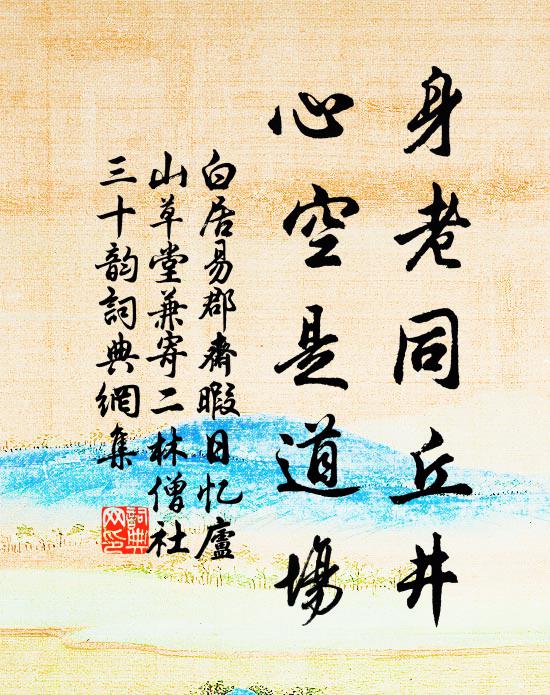 身老同丘井
心空是道場
白居易郡齋暇日忆廬
山草堂兼寄二林僧社
三十韵詞典網集
詞典网印